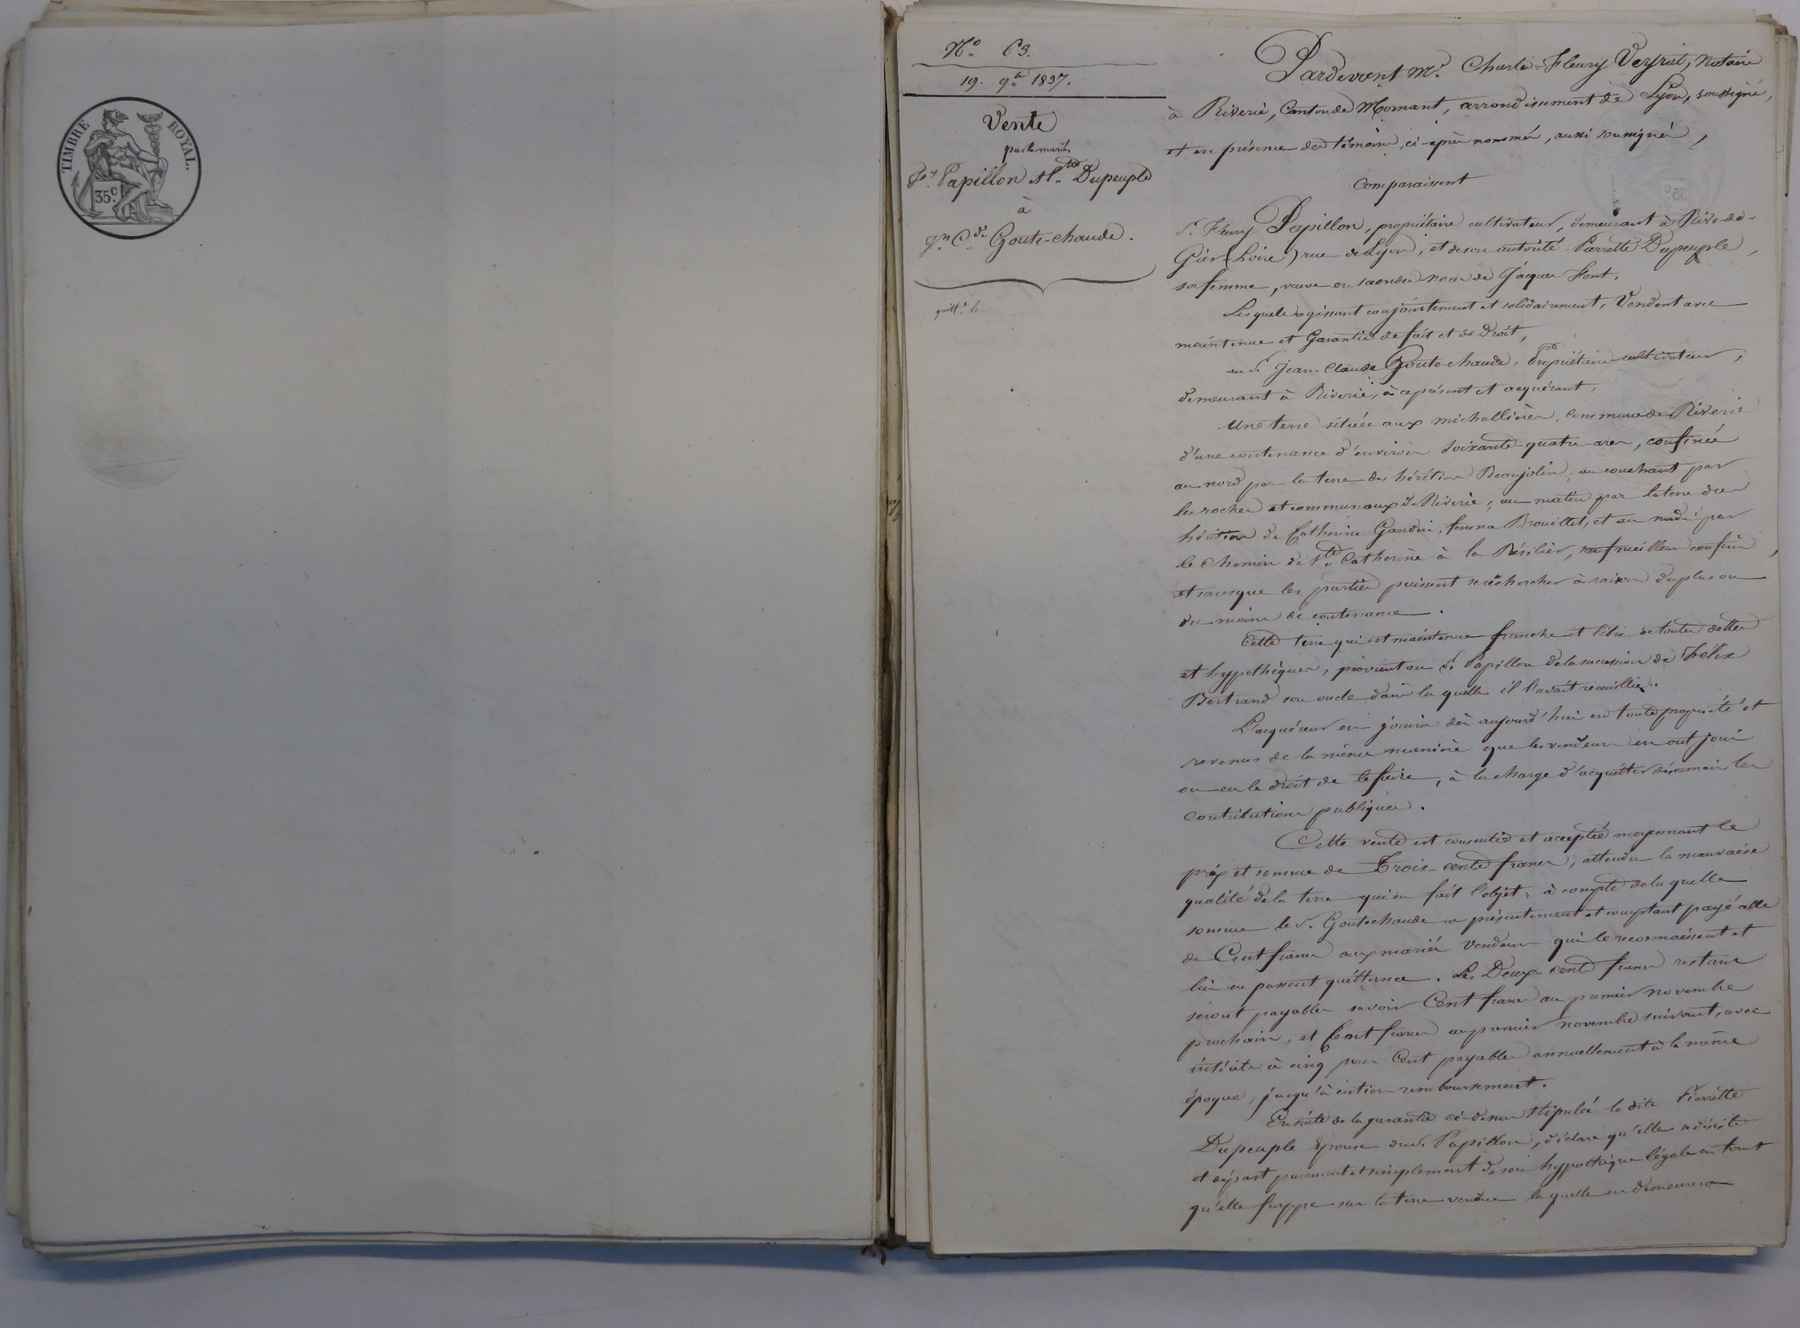 TIMBRE ROYAL.
35c.
No. 63.
19. 9bre 1837.
Vente
par les mariés
Fy. Papillon et Pte Dupeuple
à
Jn Cde Goute-chaude.
quitt.e le
Pardevant Me. Charle-Fleury Veyrat, Notaire
à Riverie, Canton de Mornant, arrondissement de Lyon, soussigné,
et en présence des témoins, ci-après nommés, aussi soussignés,
Comparaissent
Sr. Fleury Papillon, propriétaire cultivateur, demeurant à Rive-de-
Gier (Loire) rue de Lyon, et de son autorité Pierrette Dupeuple,
sa femme, veuve en secondes noces de Jacques Font.
Lesquels agissant conjointement et solidairement, Vendent avec
maintenue et Garantie de fait et de Droit,
au Sr. Jean-Claude Goute-chaude, Propriétaire cultivateur,
demeurant à Riverie, à ce présent et acquérant,
Une terre située aux michallières, commune de Riverie
d'une contenance d'environ soixante-quatre ares, confinée
au nord par la terre des héritiers Beaujolin, au couchant par
les rochers et communaux de Riverie, au matin par la terre des
héritiers de Catherine Gandin, femme Brouillet, et au midi par
le chemin de Ste Catherine à la, sauf meilleurs confins,
et sans que les parties puissent se rechercher à raison du plus ou
du moins de contenance.
Cette terre qui est maintenue franche et libre de toutes dettes
et hypothèques, provient au Sr. Papillon de la succession de Félix
Bertrand son oncle dans laquelle il l'avait recueillie.
L'acquéreur en jouira dès aujourd'hui en toute propriété et
revenus de la même manière que les vendeurs en ont joui
ou eu le droit de le faire, à la charge d'acquitter désormais les
contributions publiques.
Cette vente est consentie et acceptée moyennant le
prix et somme de Trois-cents francs, attendu la mauvaise
qualité de la terre qui en fait l'objet, à compte de laquelle
somme le Sr. Goutechaude a présentement et comptant payé celle
de Cent francs aux mariés vendeurs qui le reconnaissent et
lui en passent quittance. Les Deux cents francs restans
seront payables savoir Cent francs au premier novembre
prochain, et Cent francs au premier novembre suivant, avec
intérêts à cinq pour Cent payables annuellement à la même
époque, jusqu'à entier remboursement.
Ensuite de la garantie ci-dessus stipulée la dite Pierrette
Dupeuple épouse du Sr. Papillon, déclare qu'elle se désiste
et départ purement et simplement de son hypothèque légale en tant
qu'elle frappe sur la terre vendue laquelle en demeurera